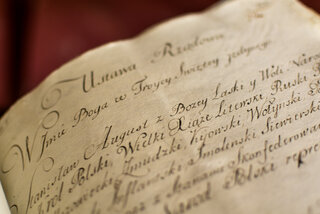 Ustawa Rządowa
W Imię Boga w Troycy Swiętey jedynego.
Stanisław August z Bożey Łaski y Woli Narodu
Król Polski, Wielki Xiąże Litewski, Ruski, P
Żmudzki, Kijowski, Wołyński,
Inflantski Smoleński Siewierski
z Stanami Skonfederowan
Naród Polski repre